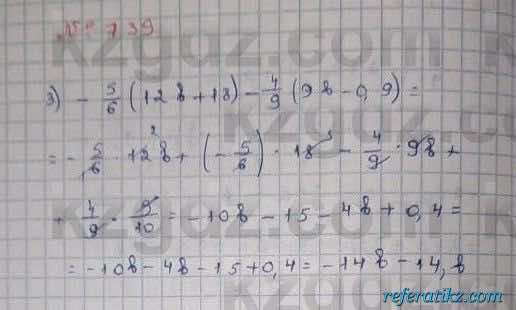 № 739
3) - 5/6 (12b + 18) - 4/9 (9b - 0,9) =
= - 5/6 · 12b + (- 5/6) · 18 - 4/9 · 9b +
+ 4/9 · 9/10 = -10b - 15 - 4b + 0,4 =
= -10b - 4b - 15 + 0,4 = -14b - 14,6
referatikz.com